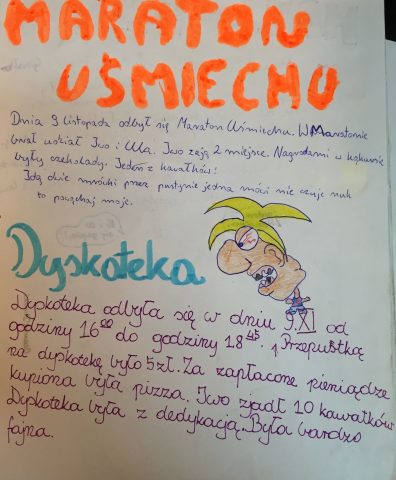 MARATON
UŚMIECHU
Dnia 9 listopada odbył się Maraton Uśmiechu. W Maratonie
brał udział Iwo i Ula. Iwo zają 2 miejsce. Nagrodami w konkursie
były czekolady. Jeden z kawałków:
Idą dwie mrówki przez pustynie jedna mówi nie czuje nuk
to powąchaj moje.
Dyskoteka
Dyskoteka odbyła się w dniu 9.XI od
godziny 16⁰⁰ do godziny 18⁴⁵. Przepustką
na dyskotekę było 5zł. Za zapłacone pieniądze
kupiona była pizza. Iwo zjadł 10 kawałków
Dyskoteka była z dedykacją. Była bardzo
fajna.